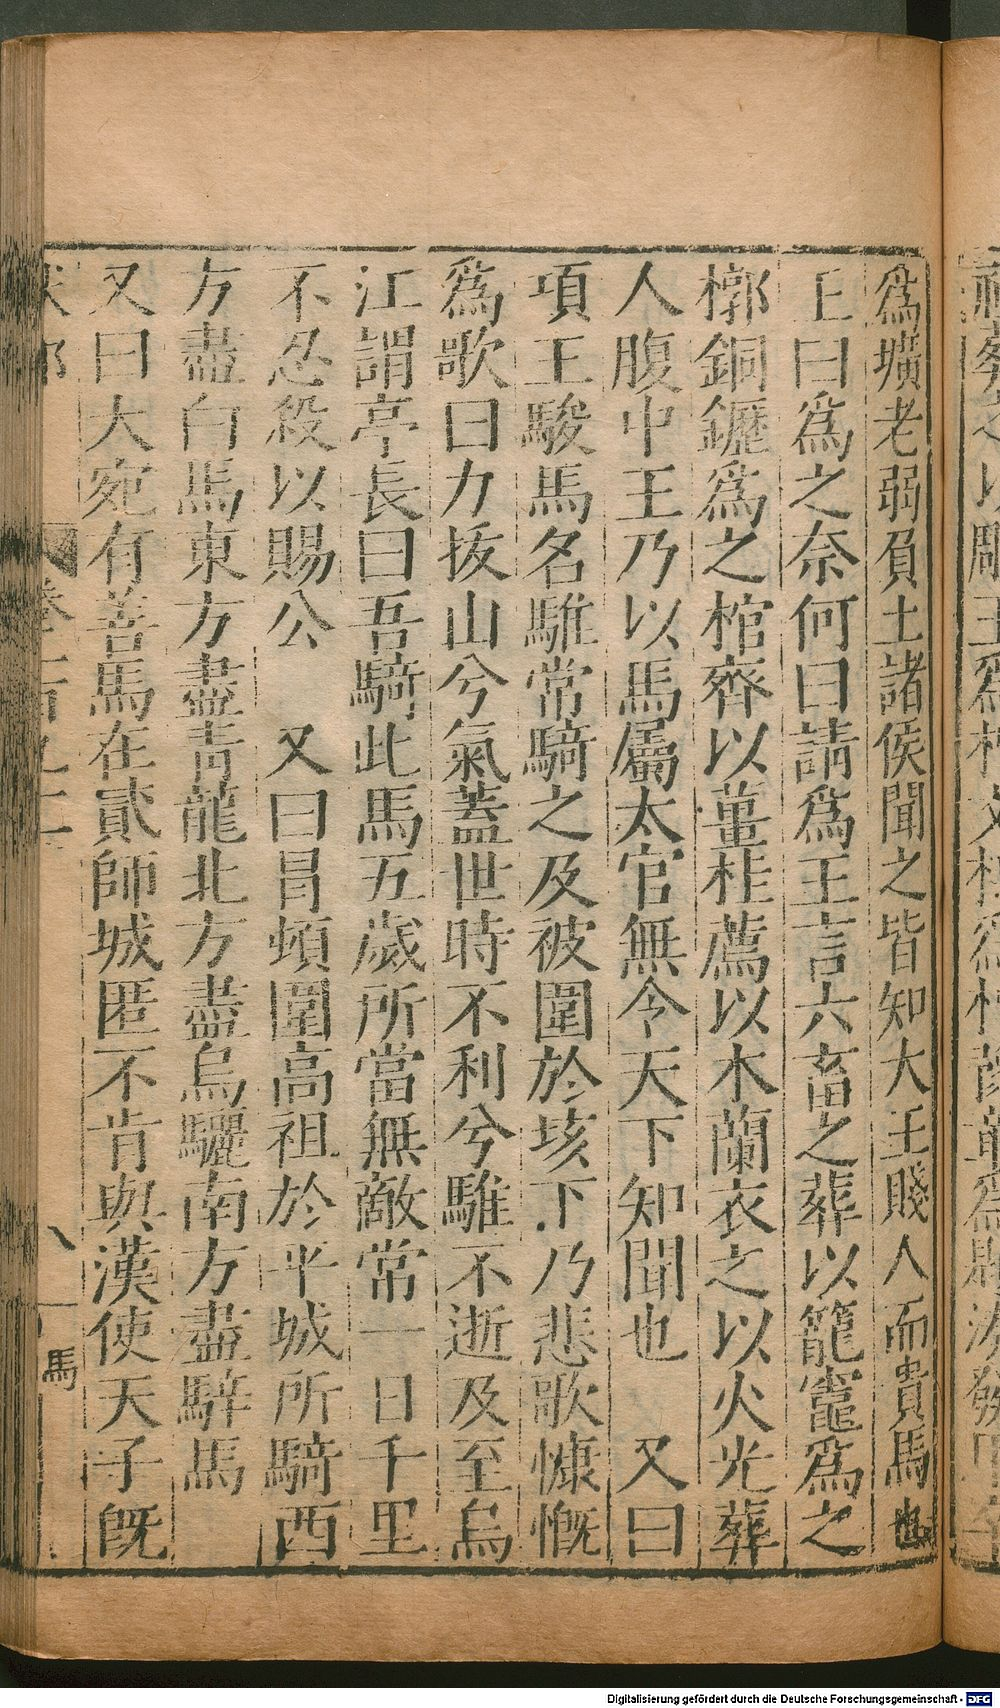 爲壙老弱負土諸侯聞之皆知大王賤人而貴馬也
王曰爲之奈何曰請爲王言六畜之葬以籠竈爲之
槨銅鑷爲之棺齊以薑桂薦以木蘭衣之以火光葬
人腹中王乃以馬屬太官無令天下知聞也　又曰
項王駿馬名騅常騎之及被圍於垓下乃悲歌慷慨
爲歌曰力拔山兮氣蓋世時不利兮騅不逝及至烏
江謂亭長曰吾騎此馬五歲所當無敵常一日千里
不忍殺以賜公　又曰冒頓圍高祖於平城所騎西
方盡白馬東方盡靑龍北方盡烏驪南方盡騂馬
又曰大宛有善馬在貳師城匿不肯與漢使天子旣
馬
Digitalisierung gefördert durch die Deutsche Forschungsgemeinschaft - DFG